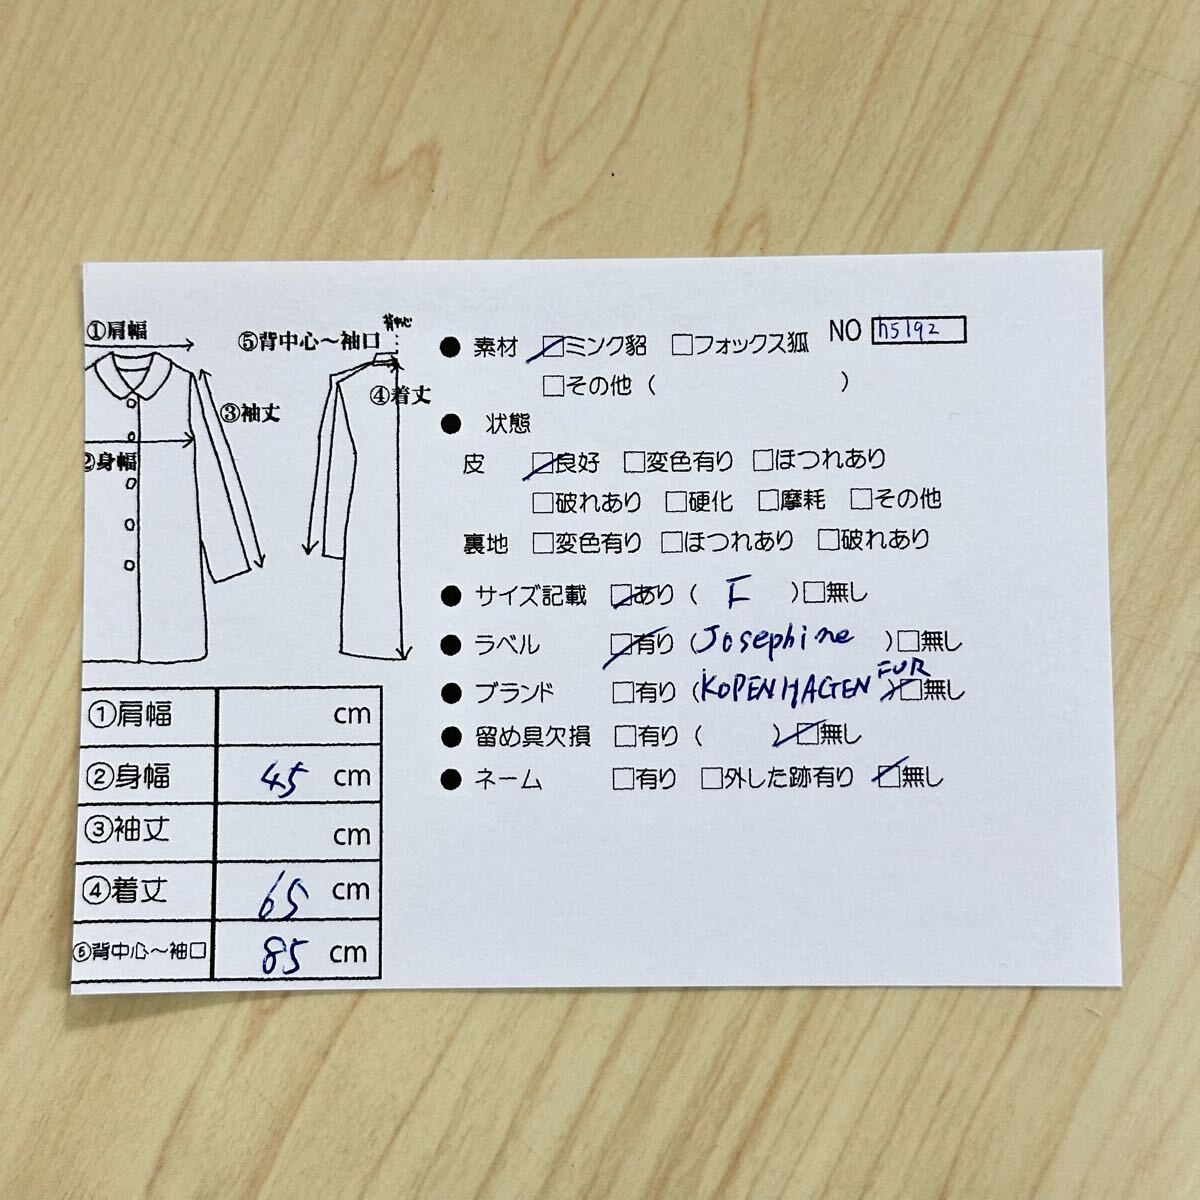 ①肩幅
⑤背中心～袖口
背中心
④着丈
③袖丈
②身幅
NO h5192
● 素材 ☑ミンク貂 □フォックス狐
□その他 ( )
● 状態
皮 ☑良好 □変色有り □ほつれあり
□破れあり □硬化 □摩耗 □その他
裏地 □変色有り □ほつれあり □破れあり
● サイズ記載 ☑あり ( F ) □無し
● ラベル ☑有り ( Josephine ) □無し
● ブランド □有り ( KOPENHAGEN FUR ) ☑無し
● 留め具欠損 □有り ( ) ☑無し
● ネーム □有り □外した跡有り ☑無し
①肩幅 cm
②身幅 45 cm
③袖丈 cm
④着丈 65 cm
⑤背中心～袖口 85 cm